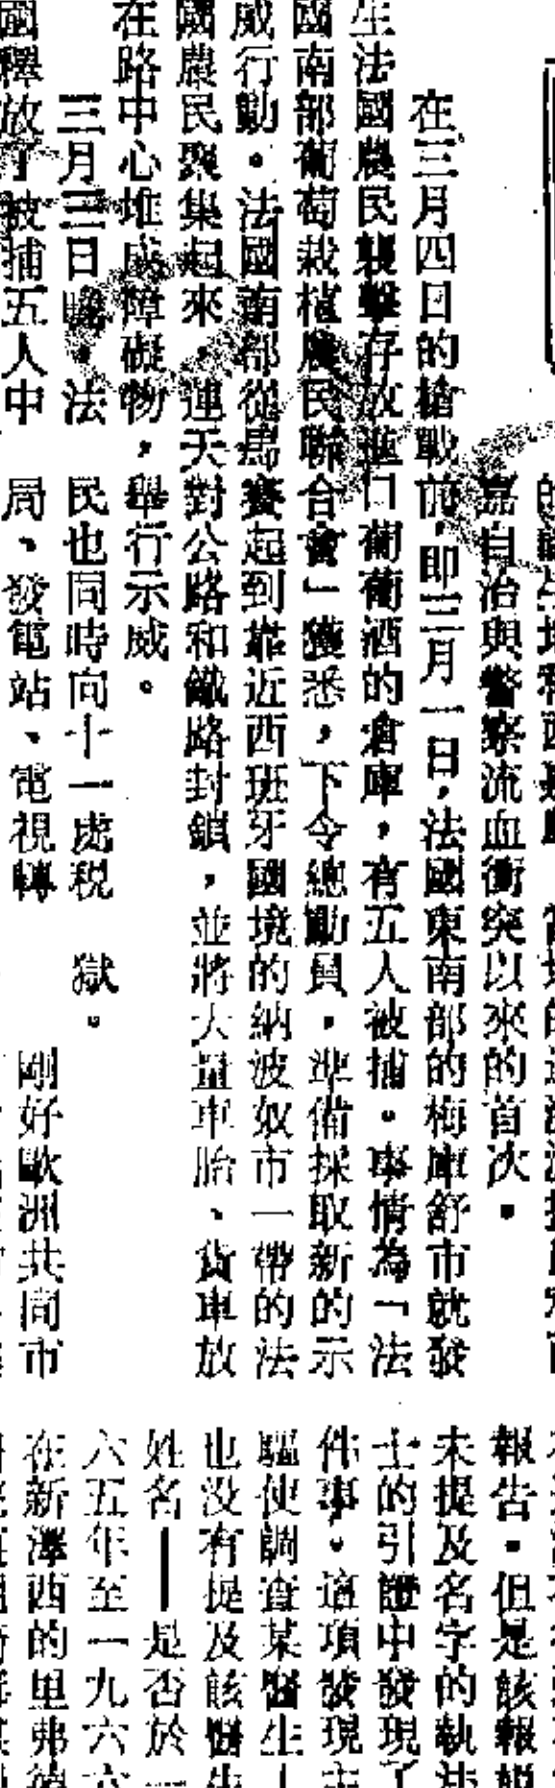 嘉自治與警察流血衝突以來的首次。
在三月四日的槍戰前，即三月一日，法國東南部的梅庫舒市就發
生法國農民襲擊存放進口葡葡酒的倉庫，有五人被捕。事情為「法
國南部葡萄栽植農民聯合會」獲悉，下令總動員，準備採取新的示
威行動。法國南部從馬賽起到靠近西班牙國境的納波奴市一帶的法
國農民聚集起來，連天對公路和鐵路封鎖，並將大量車胎、貨車放
在路中心堆成障礙物，舉行示威。
三月三日晚，法
國釋放了被捕五人中
民也同時向十一處税
局、發電站、電視轉
獄。
剛好歐洲共同市
報告。但是該報
未提及名字的執法
士的引證中發現了
件事。這項發現主
驅使調查某醫生—
也没有提及該醫生
姓名——是否於一
六五年至一九六六
在新澤西的里弗